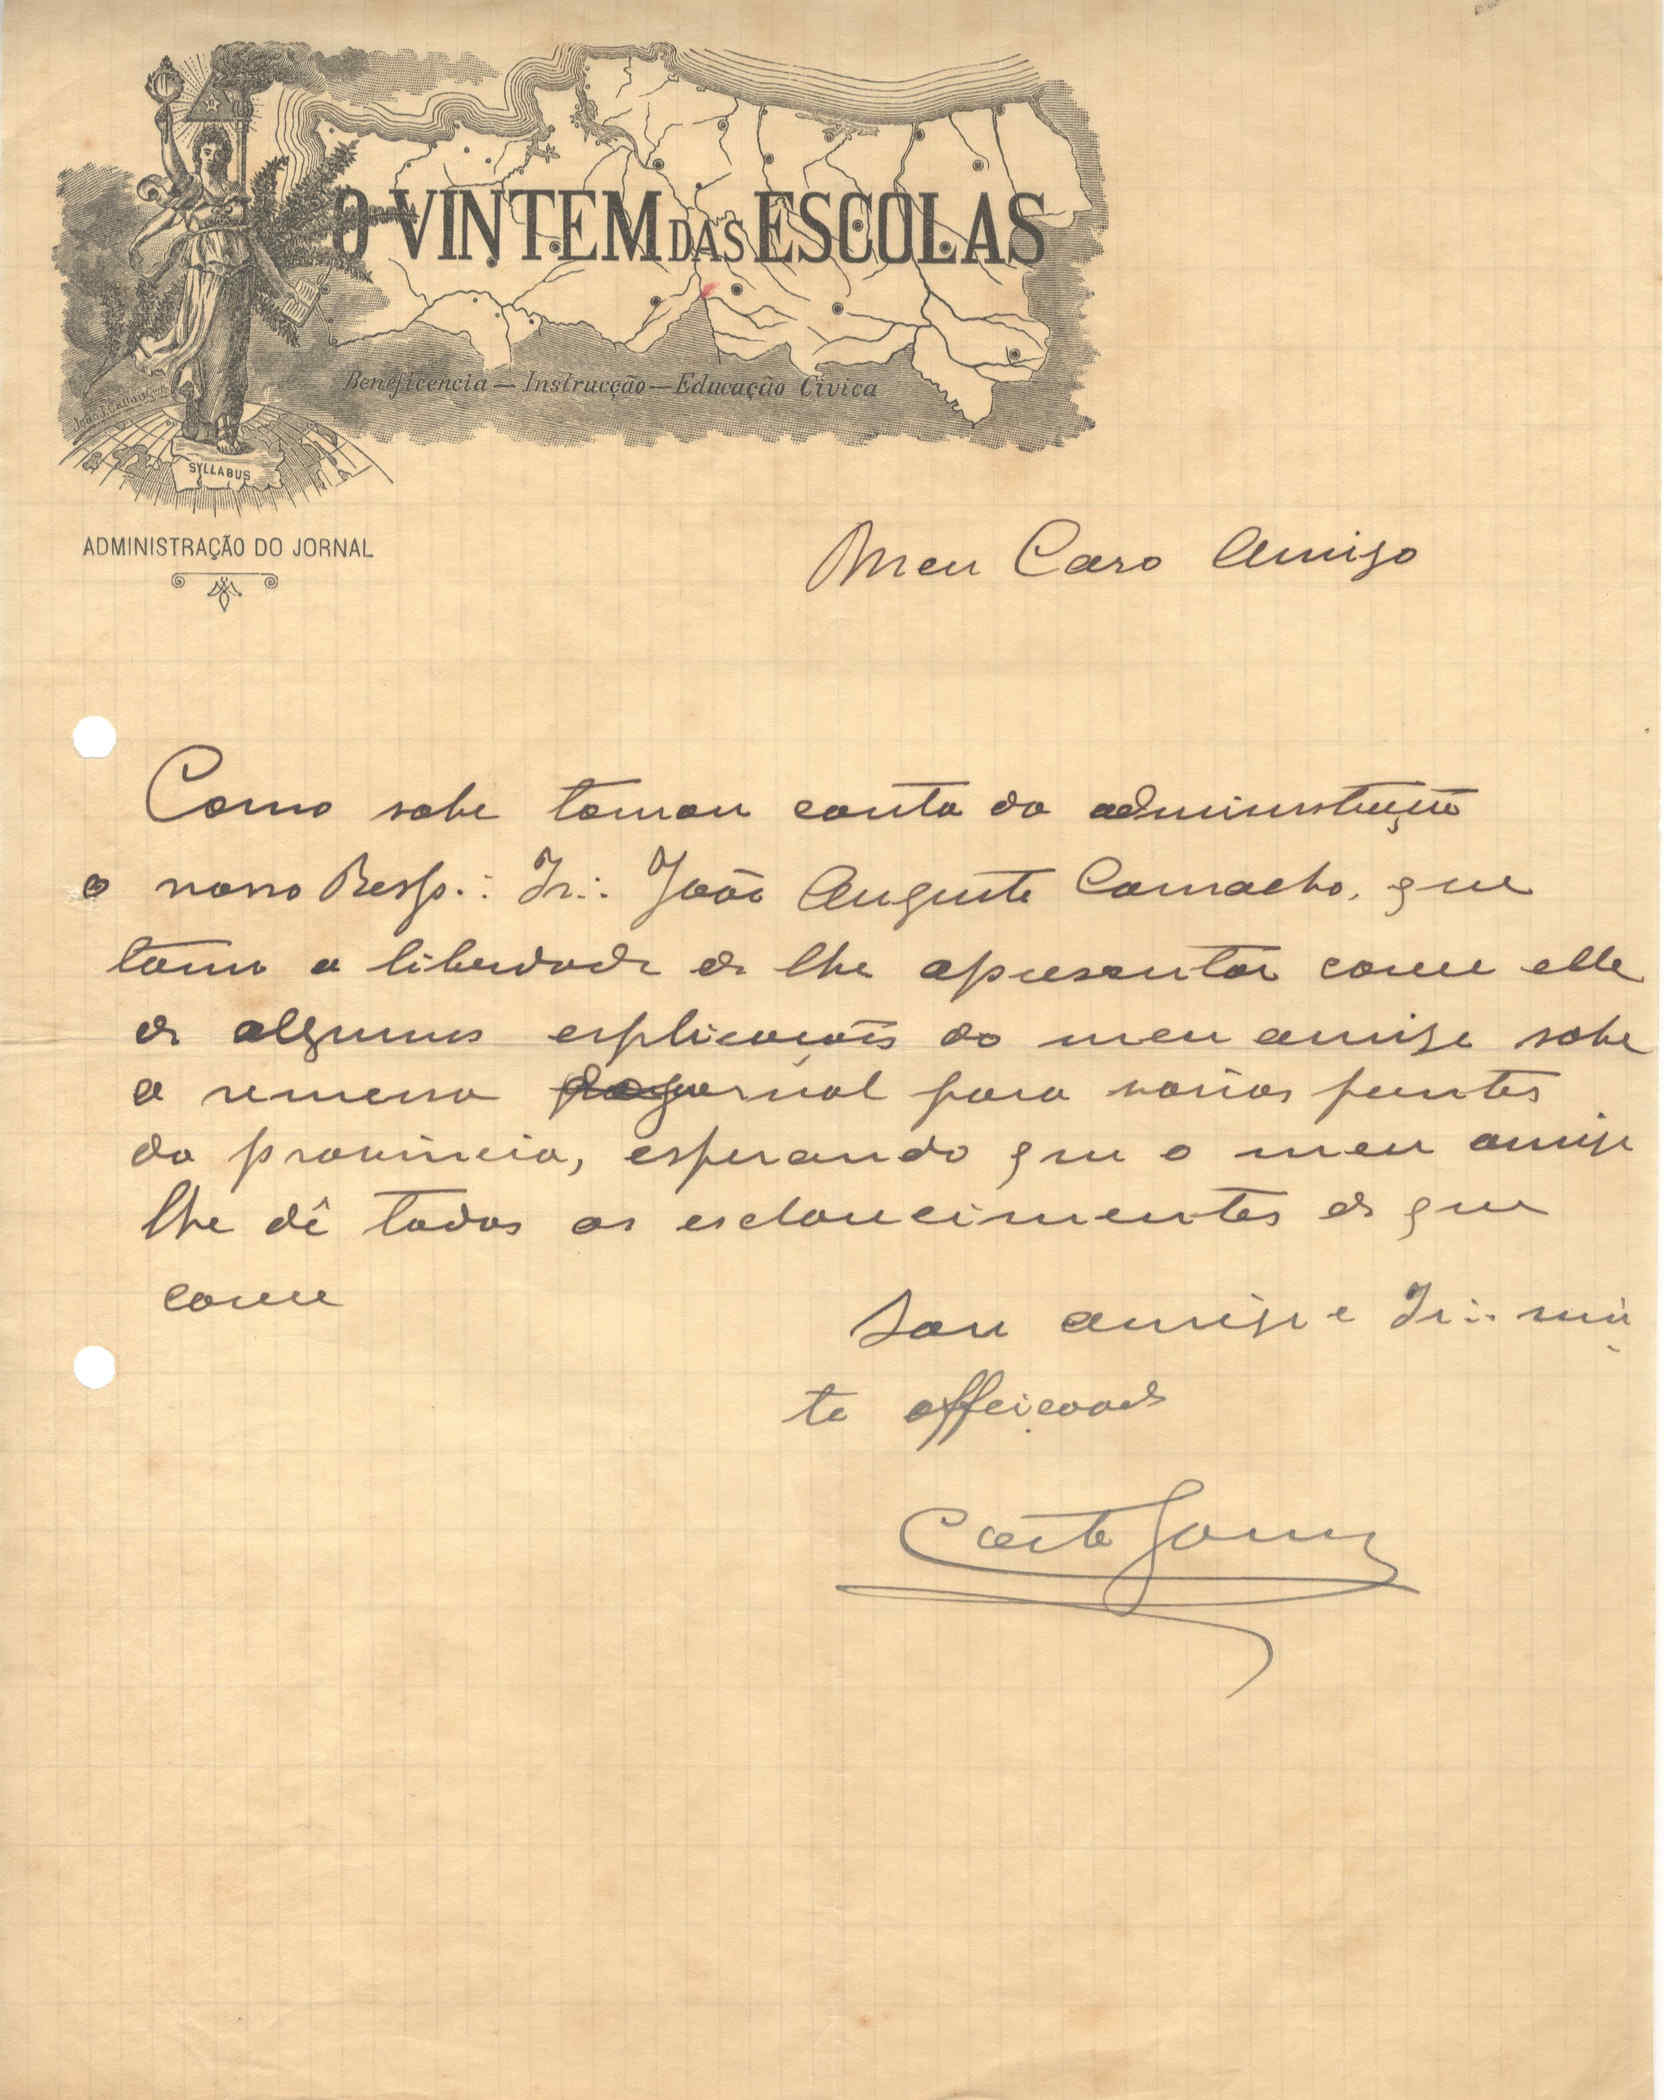 O VINTEM DAS ESCOLAS
Beneficencia — Instrucção — Educação Civica
SYLLABUS
ADMINISTRAÇÃO DO JORNAL
Meu Caro Amigo
Como sabe tomou conta da administração
o nosso Resp.∴ Ir.∴ João Augusto Camacho, que
tomo a liberdade de lhe apresentar
de algumas explicações do meu amigo sobre
a remessa jornal para varios pontos
da provincia, esperando que o meu amigo
lhe dê todos os esclarecimentos de que
Sou amigo e Ir∴ mui
to affeiçoado
Costa Gomes